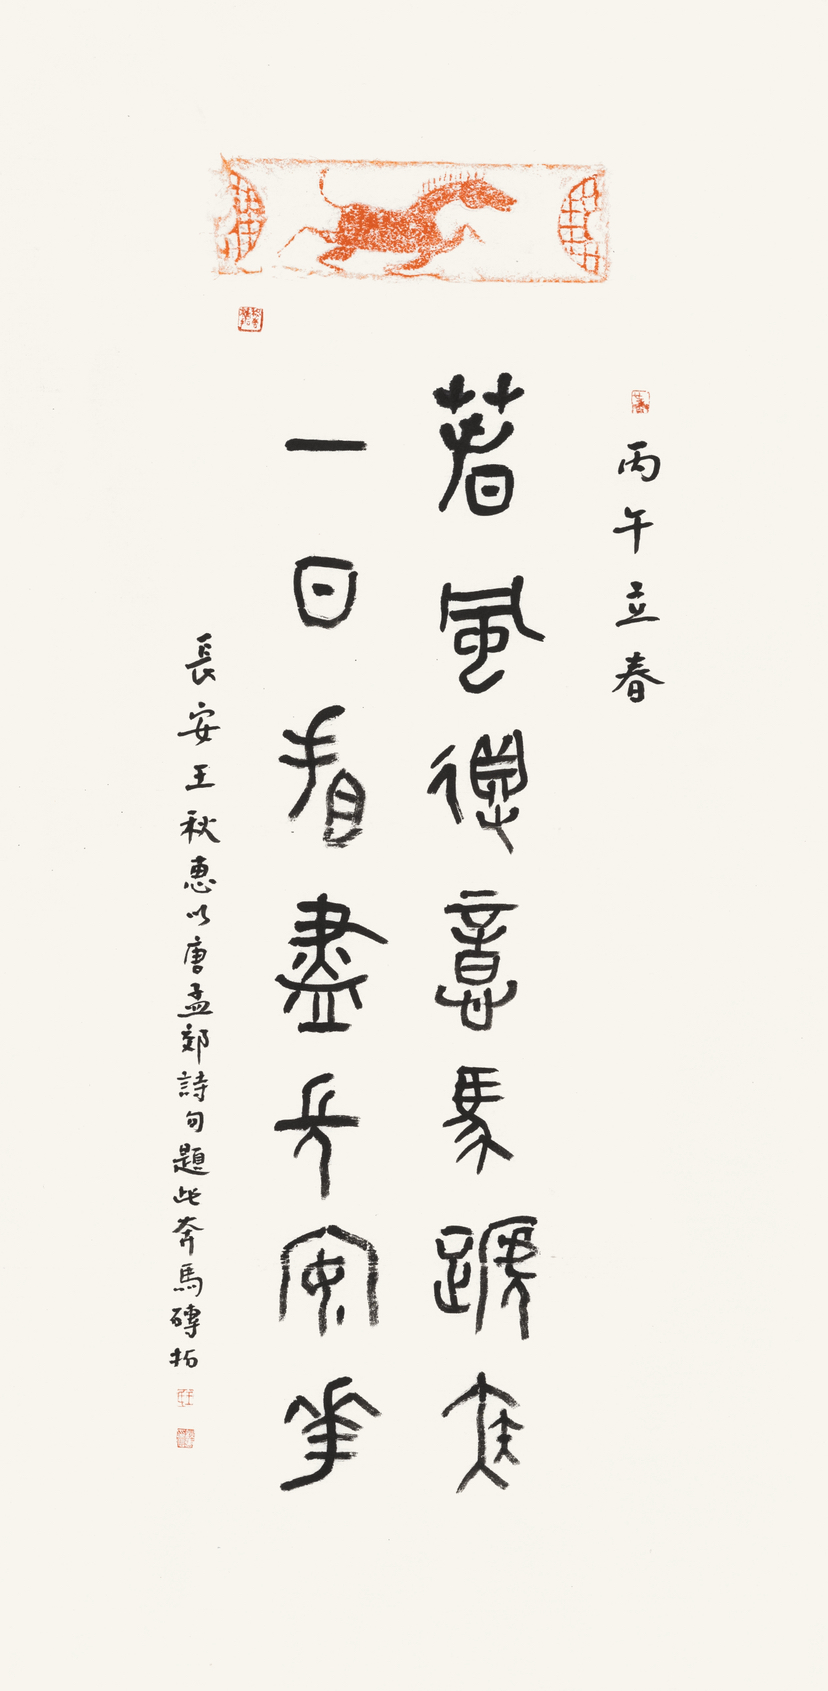 丙午立春
春風得意馬蹄疾
一日看盡長安花
長安王秋惠以唐孟郊詩句題此奔馬磚拓